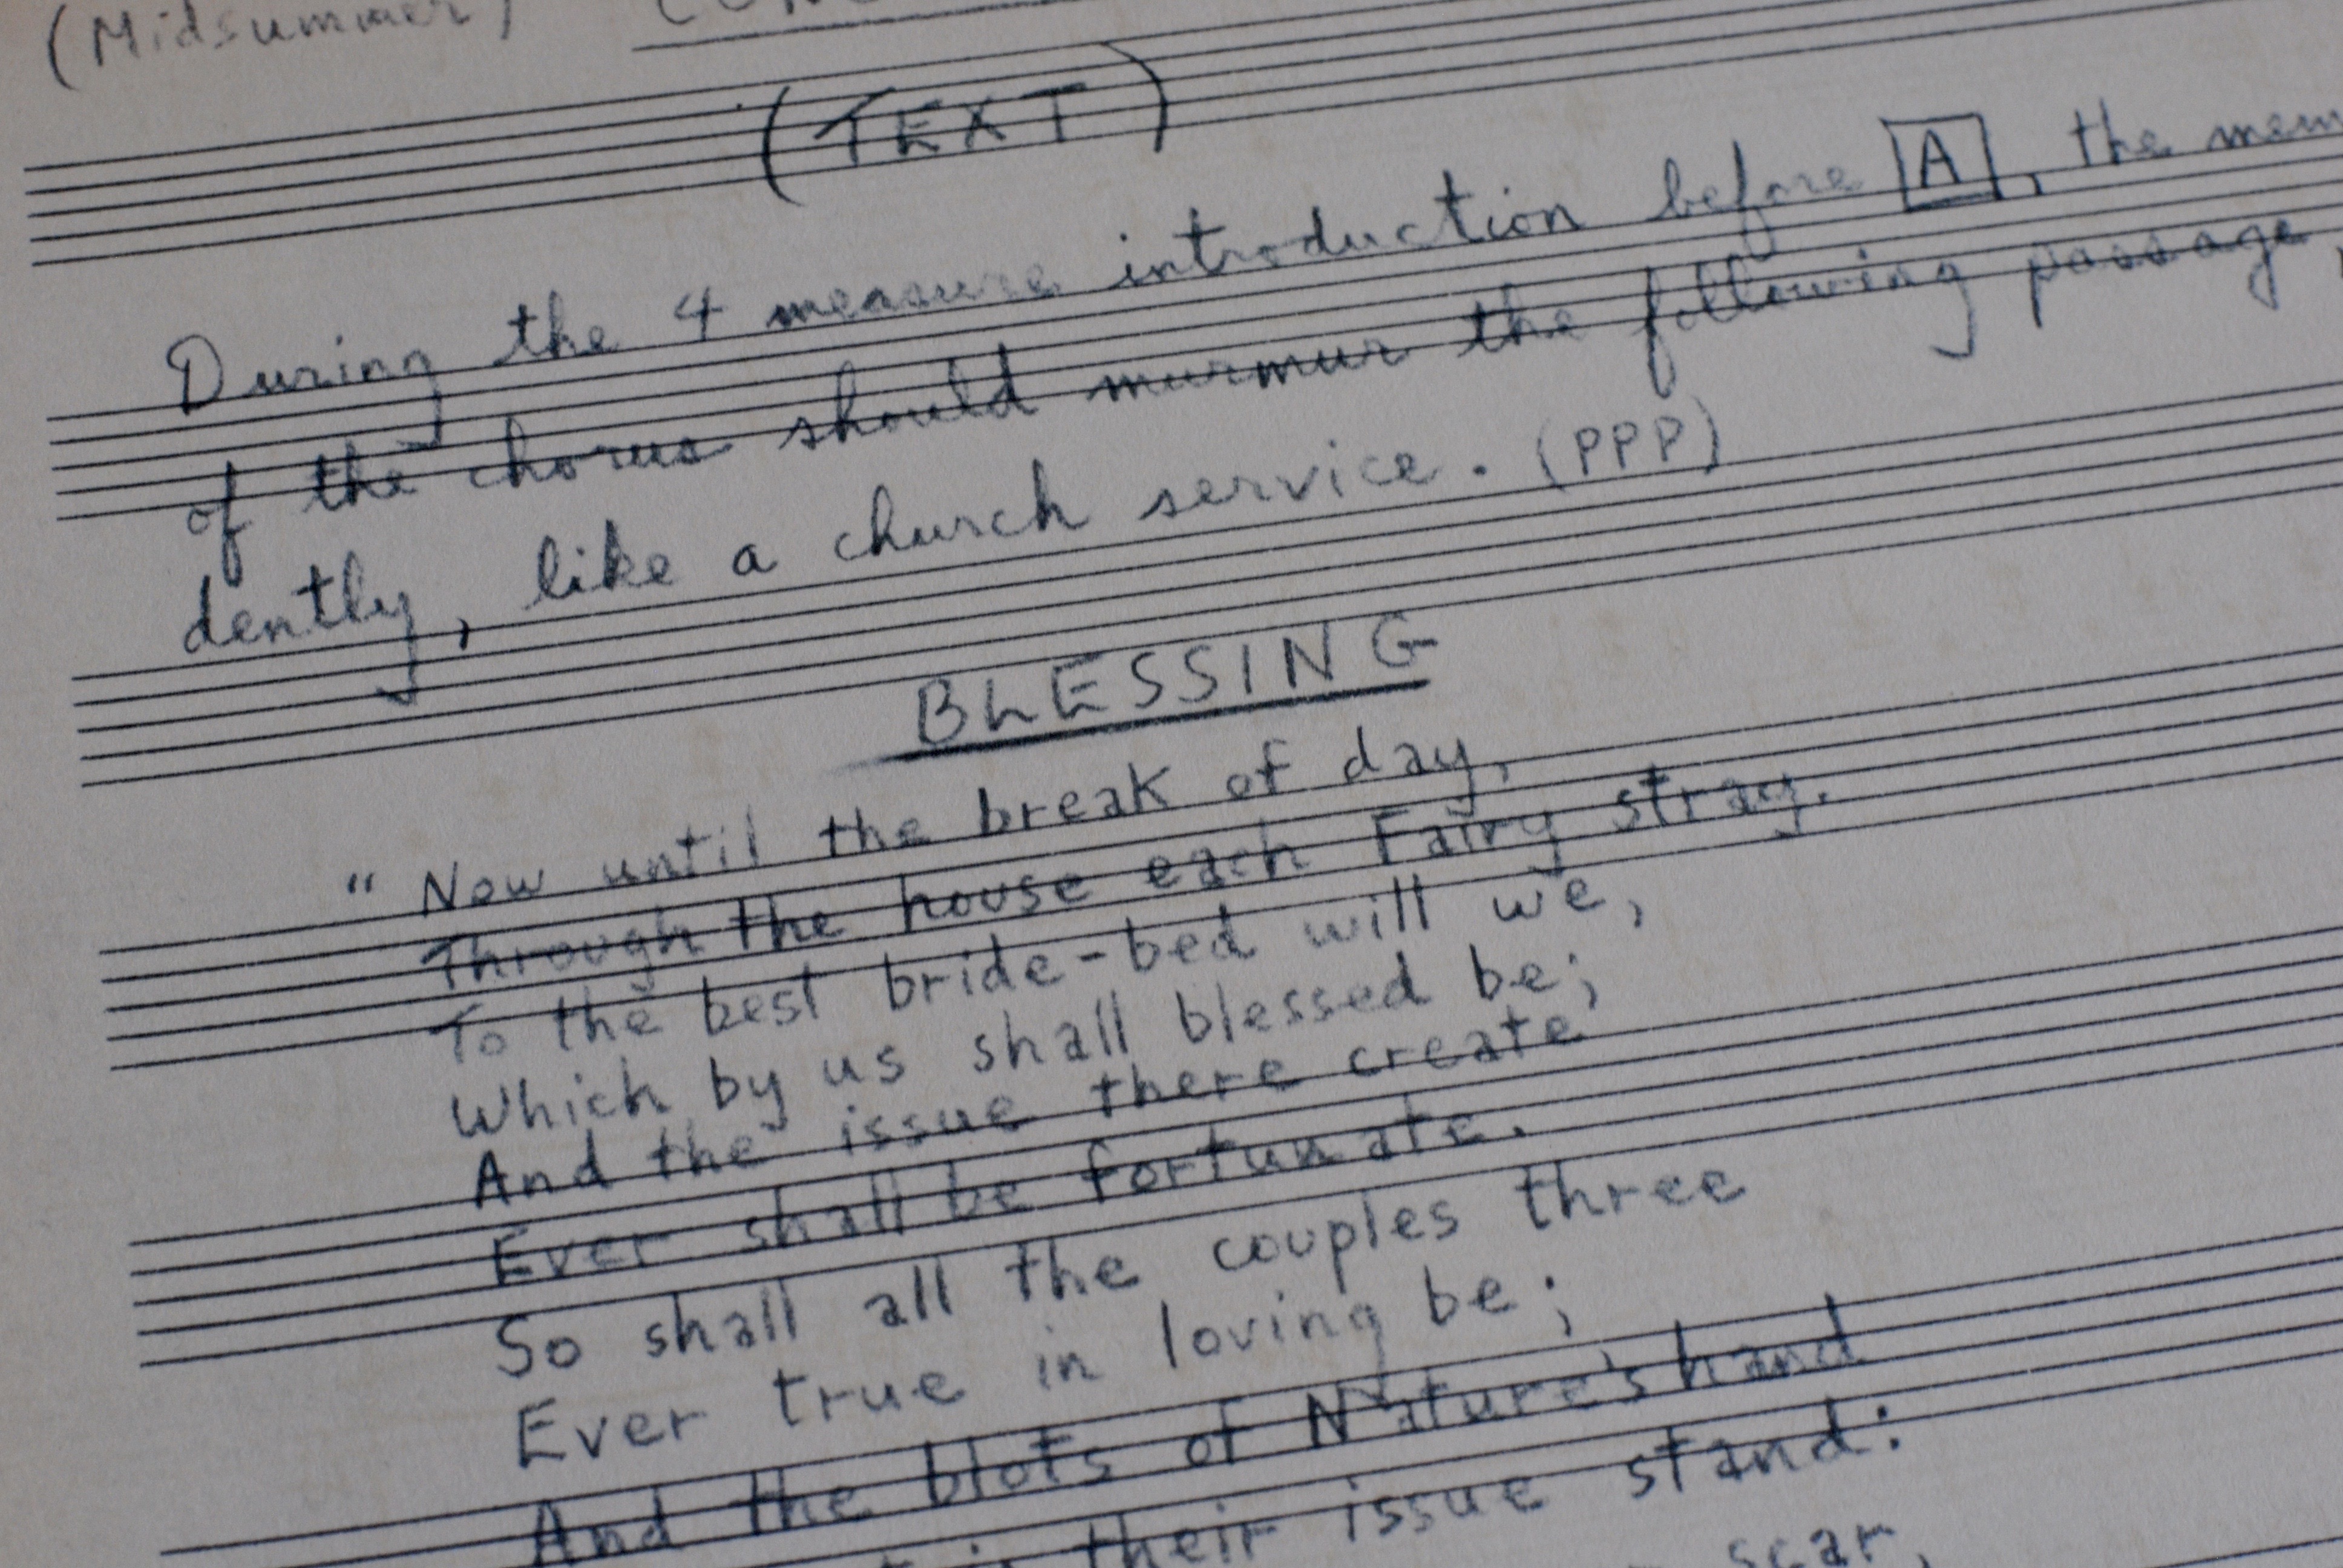 (Midsummer)
(TEXT)
During the 4 measure introduction before A, the mem
of the chorus should murmur the following passage,
dently, like a church service. (PPP)
BLESSING
“ Now until the break of day,
Through the house each Fairy stray.
To the best bride-bed will we,
Which by us shall blessed be;
And the issue there create
Ever shall be fortunate.
So shall all the couples three
Ever true in loving be;
And the blots of Nature's hand
their issue stand:
scar,